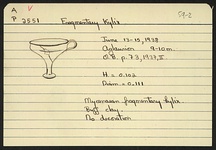 A
P 2551 Fragmentary Kylix 59-2
June 13-15, 1938
9-10m.
O.B. p. 73, 1937, II.
H = 0.103
Diam = 0.111
Mycenaean fragmentary kylix.
Buff clay.
No decoration